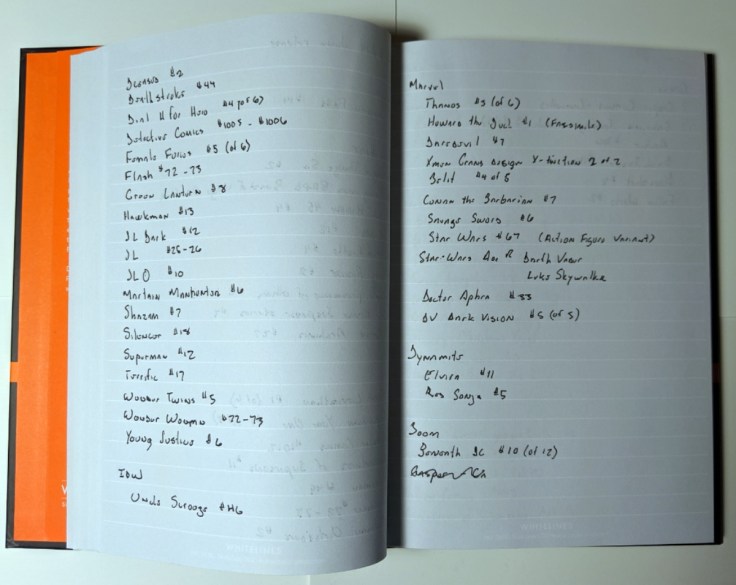 Deathstroke #44
Dial H for Hero #4 (of 6)
Detective Comics #1005 - #1006
Female Furies #5 (of 6)
Flash #72-73
Green Lantern #8
Hawkman #13
JL Dark #12
JL #25-26
JLO #10
Martain Manhunter #6
Shazam #7
Silencer #18
Superman #12
Terrific #17
Wonder Twins #5
Wonder Woman #72-73
Young Justice #6
IDW
Uncle Scrooge #46
Marvel
Thanos #3 (of 6)
Howard the Duck #1 (Facsimile)
Daredevil #7
Xmen Grand Design X-tinction 2 of 2
Belit #4 of 5
Conan the Barbarian #7
Savage Sword #6
Star Wars #67 (Action Figure Variant)
Star Wars Aor Darth Vader
Luke Skywalke
Doctor Aphra #33
DV Dark Vision #5 (of 5)
Dynamite
Elvira #11
Red Sonja #5
Boom
#10 (of 12)